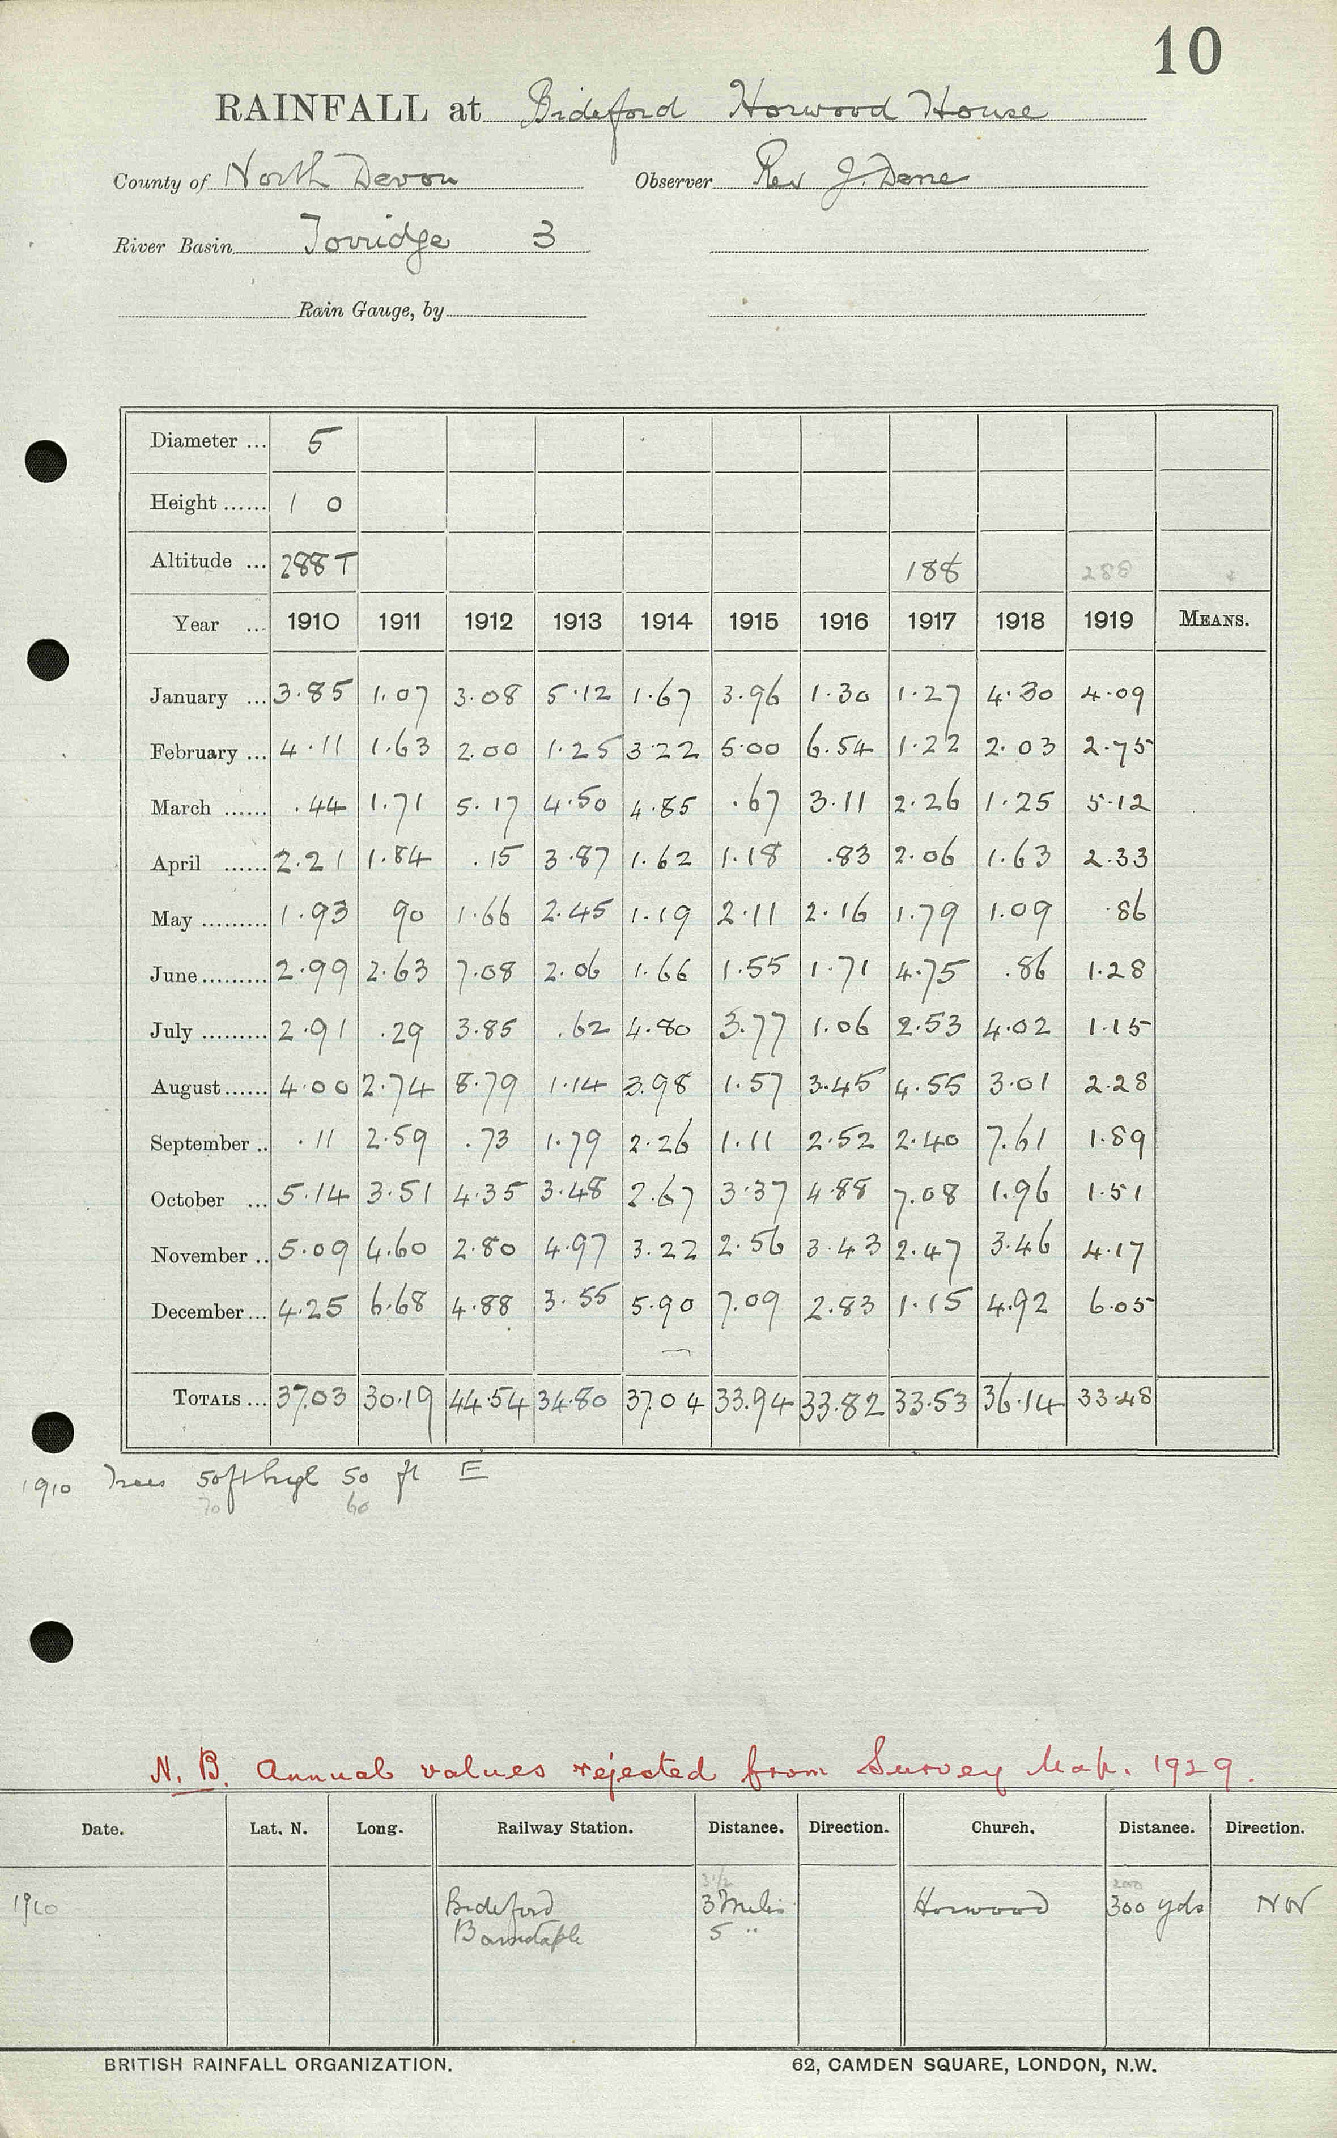 10
RAINFALL at Bideford Horwood House
County of North Devon Observer Rev J. Dene
River Basin Torridge 3
Rain Gauge, by
Diameter ... 5
Height ...... 1 0
Altitude ... 288 T 188 288
Year ... 1910 1911 1912 1913 1914 1915 1916 1917 1918 1919 MEANS.
January ... 3.85 1.07 3.08 5.12 1.67 3.96 1.30 1.27 4.30 4.09
February ... 4.11 1.63 2.00 1.25 3.22 5.00 6.54 1.22 2.03 2.75
March ...... .44 1.71 5.17 4.50 4.85 .67 3.11 2.26 1.25 5.12
April ...... 2.21 1.84 .15 3.87 1.62 1.18 .83 2.06 1.63 2.33
May ......... 1.93 90 1.66 2.45 1.19 2.11 2.16 1.79 1.09 .86
June ......... 2.99 2.63 7.08 2.06 1.66 1.55 1.71 4.75 .86 1.28
July ......... 2.91 .29 3.85 .62 4.80 3.77 1.06 2.53 4.02 1.15
August ...... 4.00 2.74 8.79 1.14 3.98 1.57 3.45 4.55 3.01 2.28
September .. .11 2.59 .73 1.79 2.26 1.11 2.52 2.40 7.61 1.89
October ... 5.14 3.51 4.35 3.48 2.67 3.37 4.88 7.08 1.96 1.51
November .. 5.09 4.60 2.80 4.97 3.22 2.56 3.43 2.47 3.46 4.17
December ... 4.25 6.68 4.88 3.55 5.90 7.09 2.83 1.15 4.92 6.05
TOTALS ... 37.03 30.19 44.54 34.80 37.04 33.94 33.82 33.53 36.14 33.48
1910 Trees 50 ft high 50 ft E
70 60
N.B. Annual values rejected from Survey Map. 1929.
Date. Lat. N. Long. Railway Station. Distance. Direction. Church. Distance. Direction.
3 1/2 200
1910 Bideford 3 Miles Horwood 300 yds NW
Barnstaple 5 "
BRITISH RAINFALL ORGANIZATION. 62, CAMDEN SQUARE, LONDON, N.W.